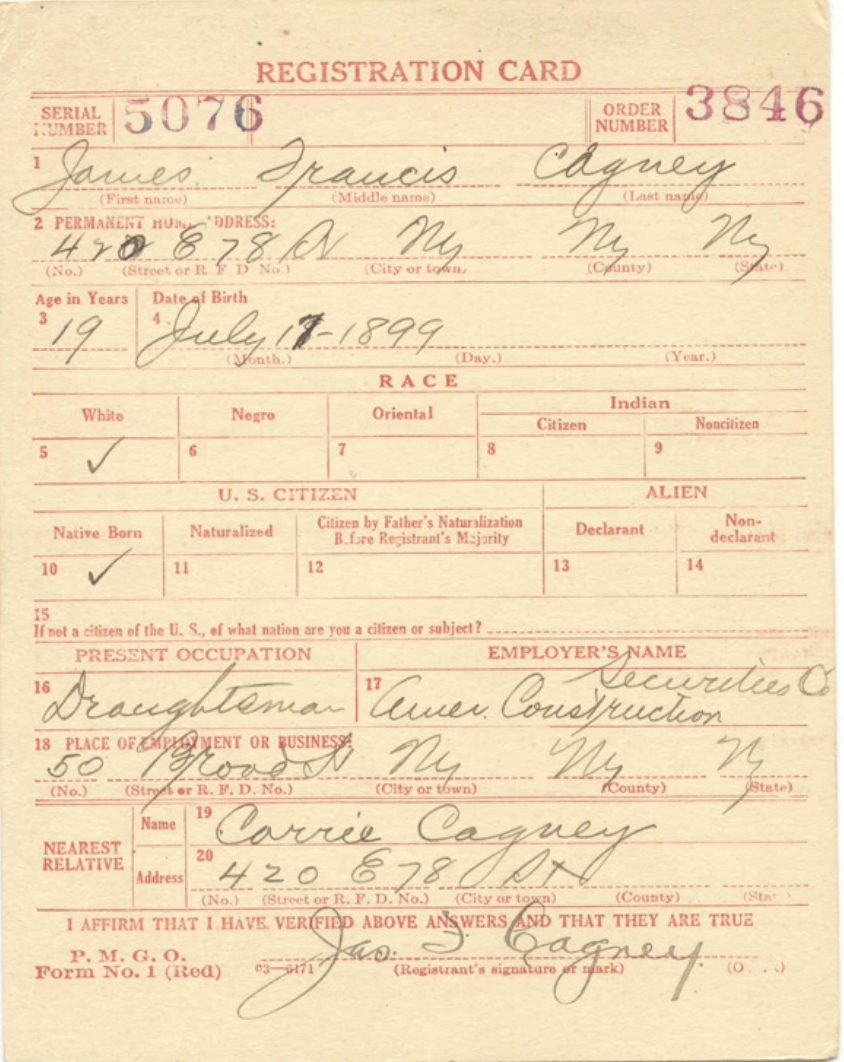 REGISTRATION CARD
SERIAL NUMBER 5076 ORDER NUMBER 3846
1 James Francis Cagney
(First name) (Middle name) (Last name)
2 PERMANENT HOME ADDRESS:
420 E 78 St Ny Ny Ny
(No.) (Street or R. F. D. No.) (City or town) (County) (State)
Age in Years Date of Birth
3 19 4 July 17-1899
(Month.) (Day.) (Year.)
RACE
White Negro Oriental Indian
Citizen Noncitizen
5 ✓ 6 7 8 9
U. S. CITIZEN ALIEN
Native Born Naturalized Citizen by Father's Naturalization Before Registrant's Majority Declarant Non-declarant
10 ✓ 11 12 13 14
15
If not a citizen of the U. S., of what nation are you a citizen or subject?
PRESENT OCCUPATION EMPLOYER'S NAME
Securities Co
16 Draughtsman 17 Amer. Construction
18 PLACE OF EMPLOYMENT OR BUSINESS:
50 Broad St Ny Ny Ny
(No.) (Street or R. F. D. No.) (City or town) (County) (State)
NEAREST RELATIVE
Name 19 Carrie Cagney
Address 20 420 E 78 St
(No.) (Street or R. F. D. No.) (City or town) (County) (State)
I AFFIRM THAT I HAVE VERIFIED ABOVE ANSWERS AND THAT THEY ARE TRUE
P. M. G. O.
Form No. 1 (Red) 03—6171 Jas. F. Cagney.
(Registrant's signature or mark)